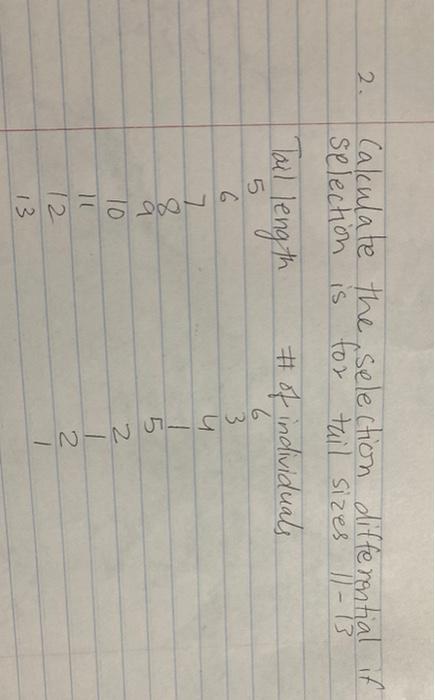 2. Calculate the selection differential if
selection is for tail sizes 11-13
Tail length # of individuals
5 6
6 3
7 4
8 1
9 5
10 2
11 1
12 2
13 1